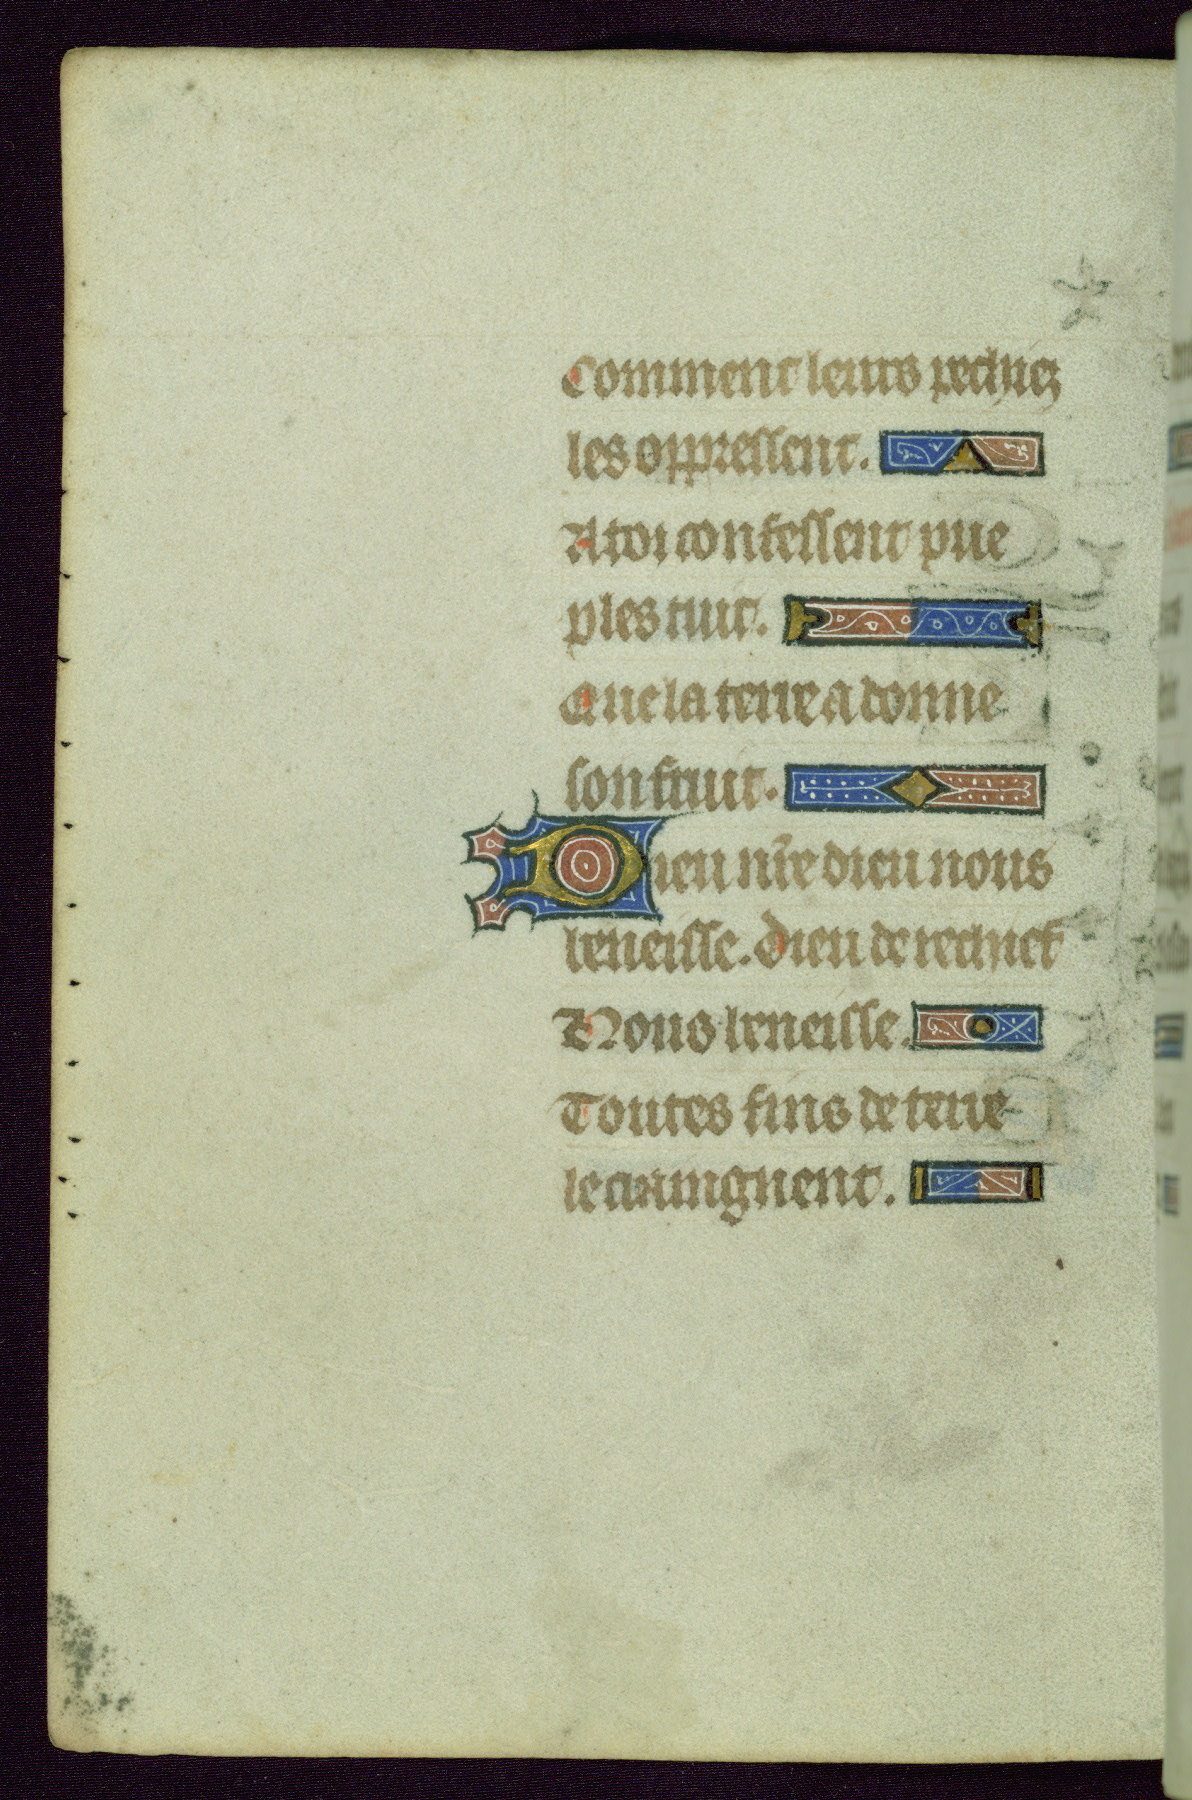 Comment leurs pechiez
les oppressent.
A toi confessent pue
ples tuit.
Que la terre a donne
son fruit.
Dieu nr̄e dieu nous
beneisse. Dieu de rechief
Nous beneisse.
Toutes fins de terre
le craingnent.